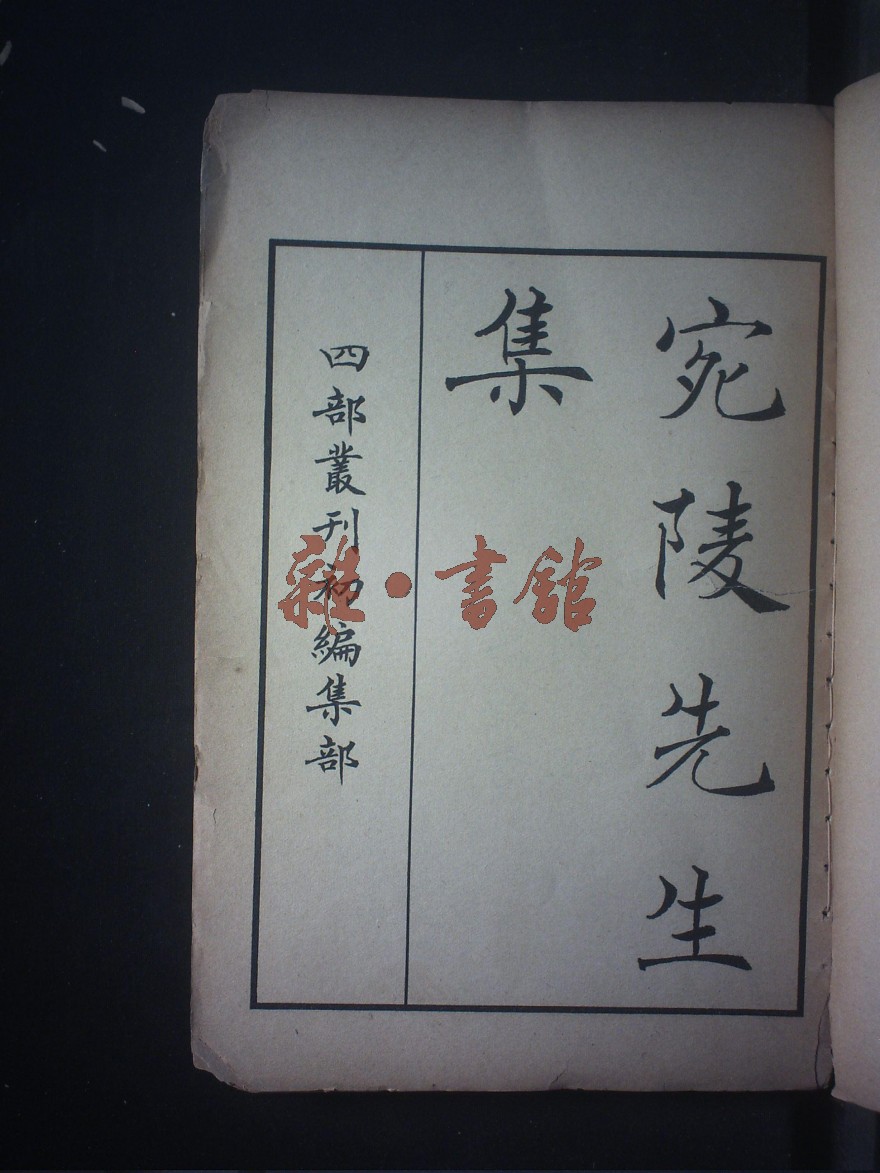 宛陵先生
集
四部叢刊初編集部
雜·書館